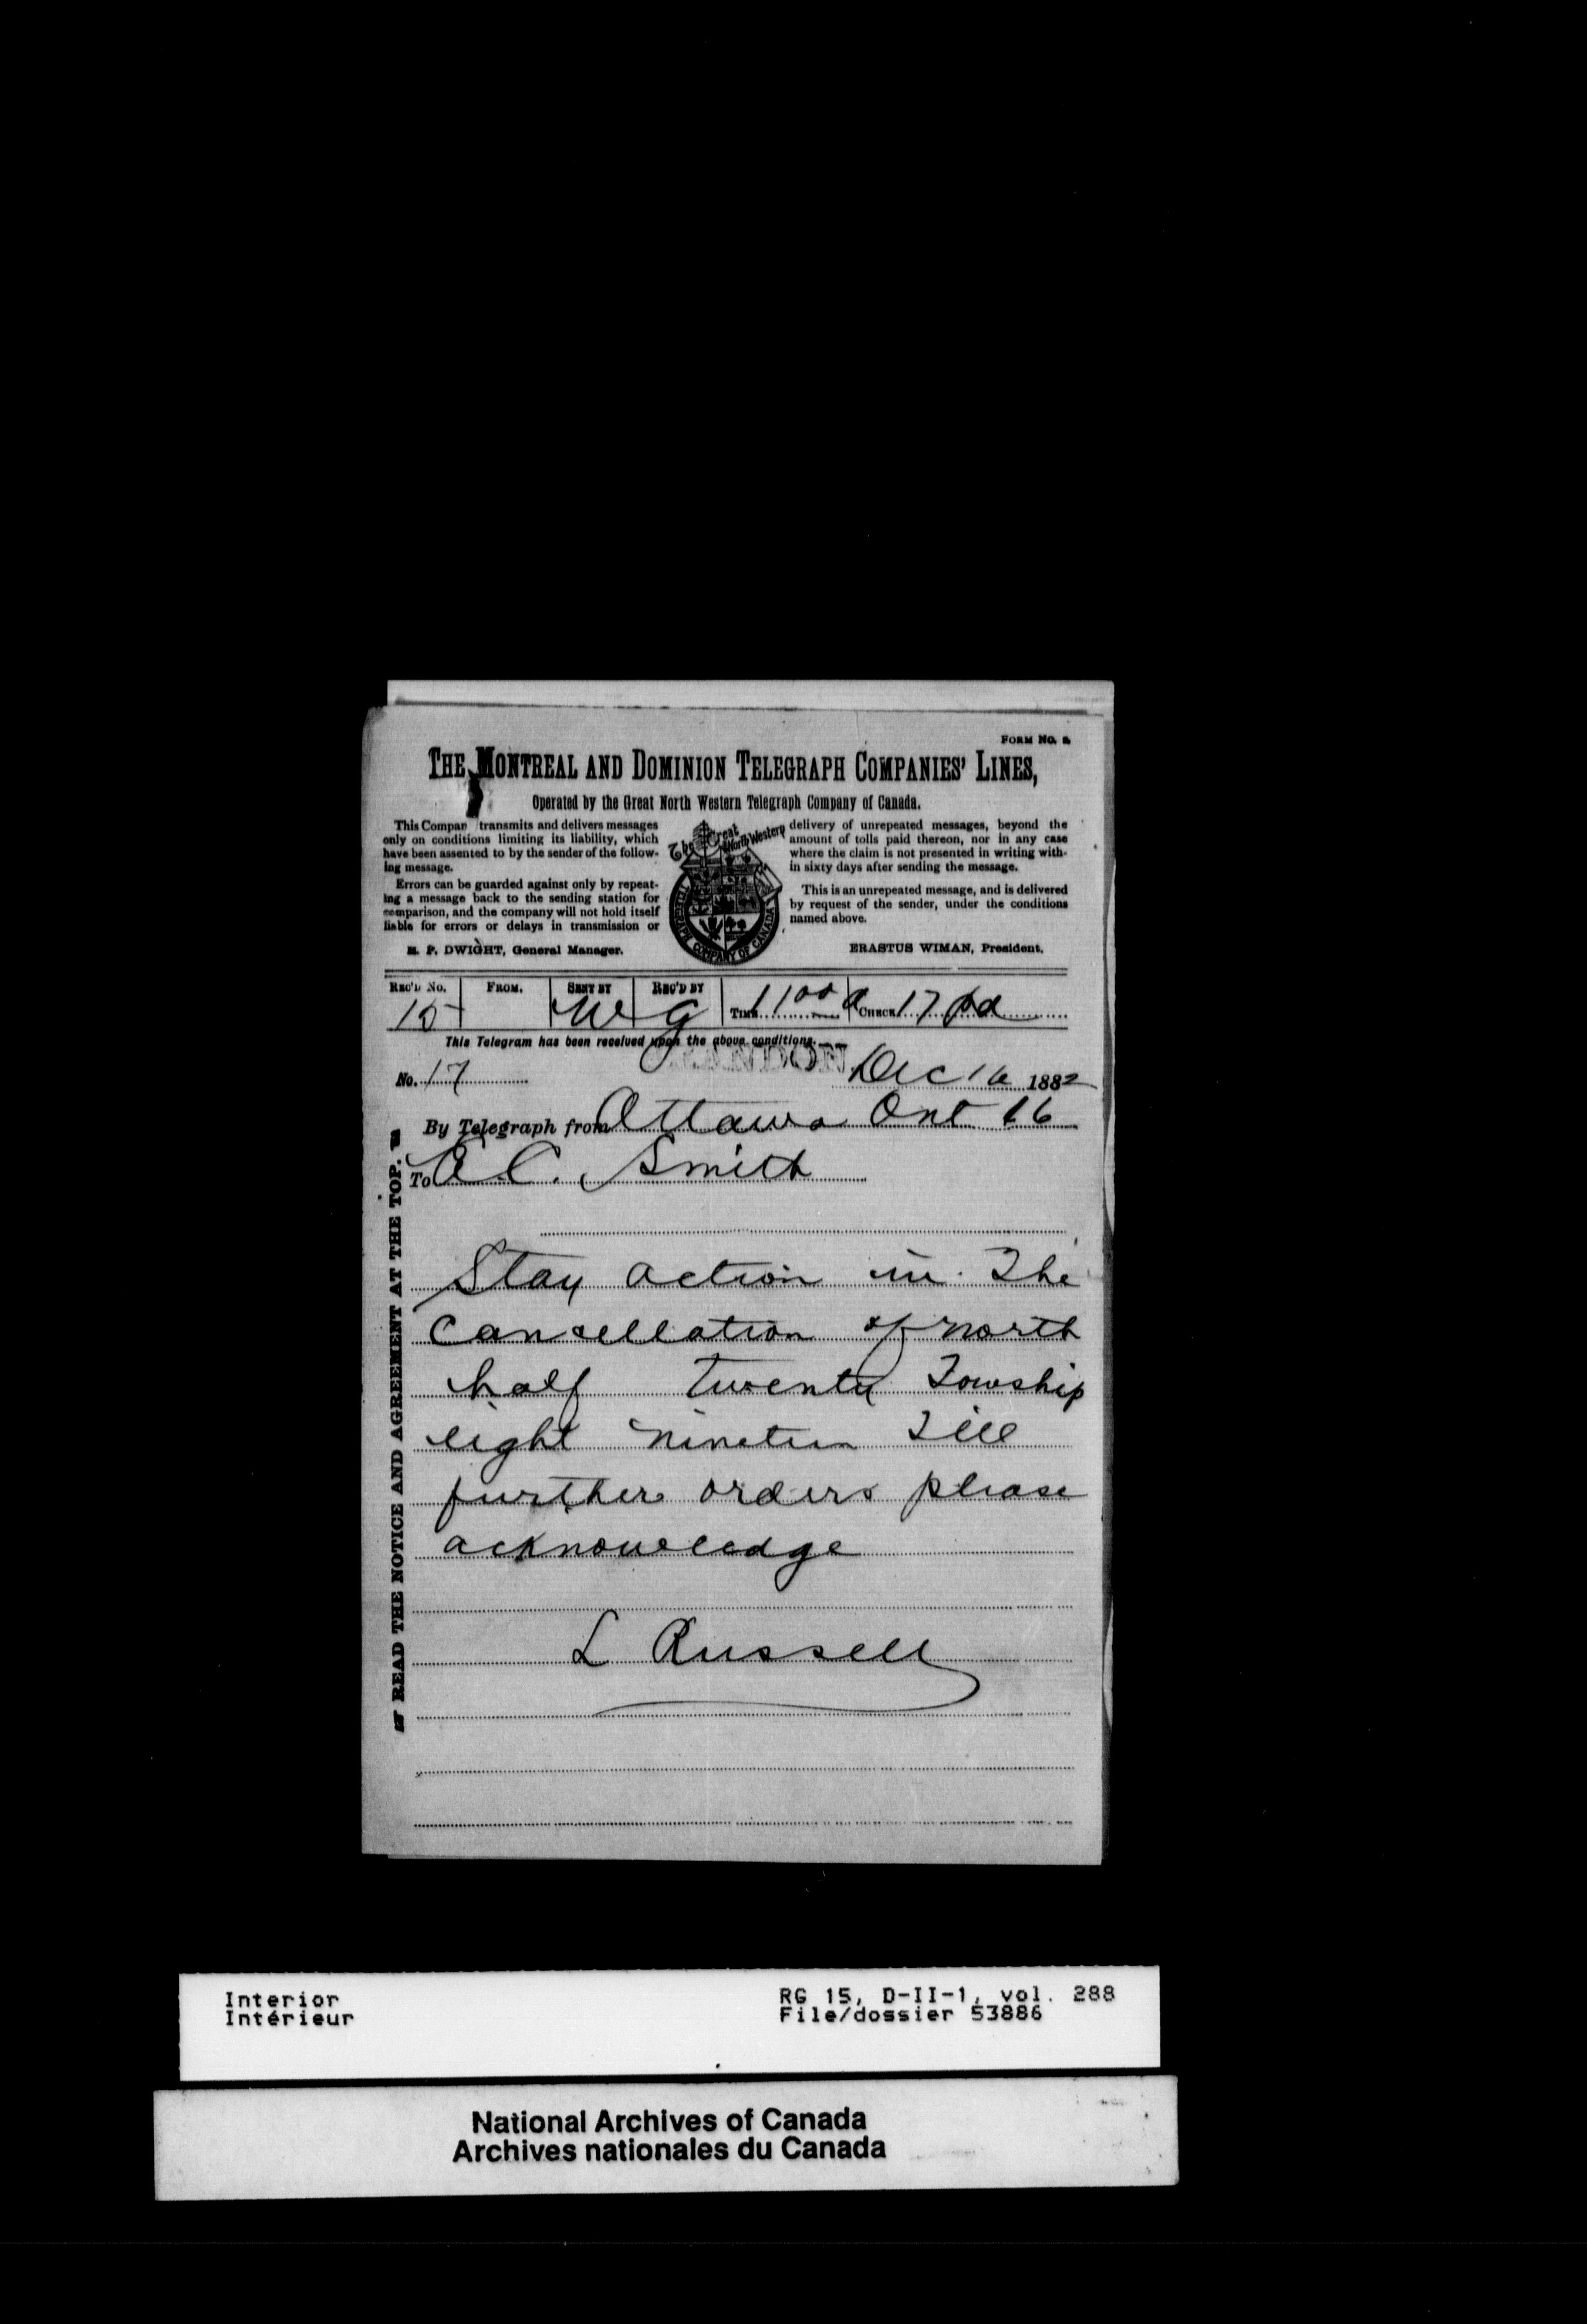 FORM No. 2.
THE MONTREAL AND DOMINION TELEGRAPH COMPANIES' LINES,
Operated by the Great North Western Telegraph Company of Canada.
This Compan transmits and delivers messages
only on conditions limiting its liability, which
have been assented to by the sender of the follow-
ing message.
Errors can be guarded against only by repeat-
ing a message back to the sending station for
comparison, and the company will not hold itself
liable for errors or delays in transmission or
H. P. DWIGHT, General Manager.
The Great North Western
TELEGRAPH COMPANY OF CANADA
delivery of unrepeated messages, beyond the
amount of tolls paid thereon, nor in any case
where the claim is not presented in writing with-
in sixty days after sending the message.
This is an unrepeated message, and is delivered
by request of the sender, under the conditions
named above.
ERASTUS WIMAN, President.
REC'D No. FROM. SENT BY REC'D BY TIME 11 00 a CHECK 17 pd
15 W G
This Telegram has been received upon the above conditions.
BRANDON
No. 17 Dec 16 1882
By Telegraph from Ottawa Ont 16
To A. C. Smith
Stay action in The
Cancellation of north
half Twenty Towship
eight nineteen Till
further orders please
acknowledge
L Russell
READ THE NOTICE AND AGREEMENT AT THE TOP.
Interior
Intérieur
RG 15, D-II-1, vol. 288
File/dossier 53886
National Archives of Canada
Archives nationales du Canada